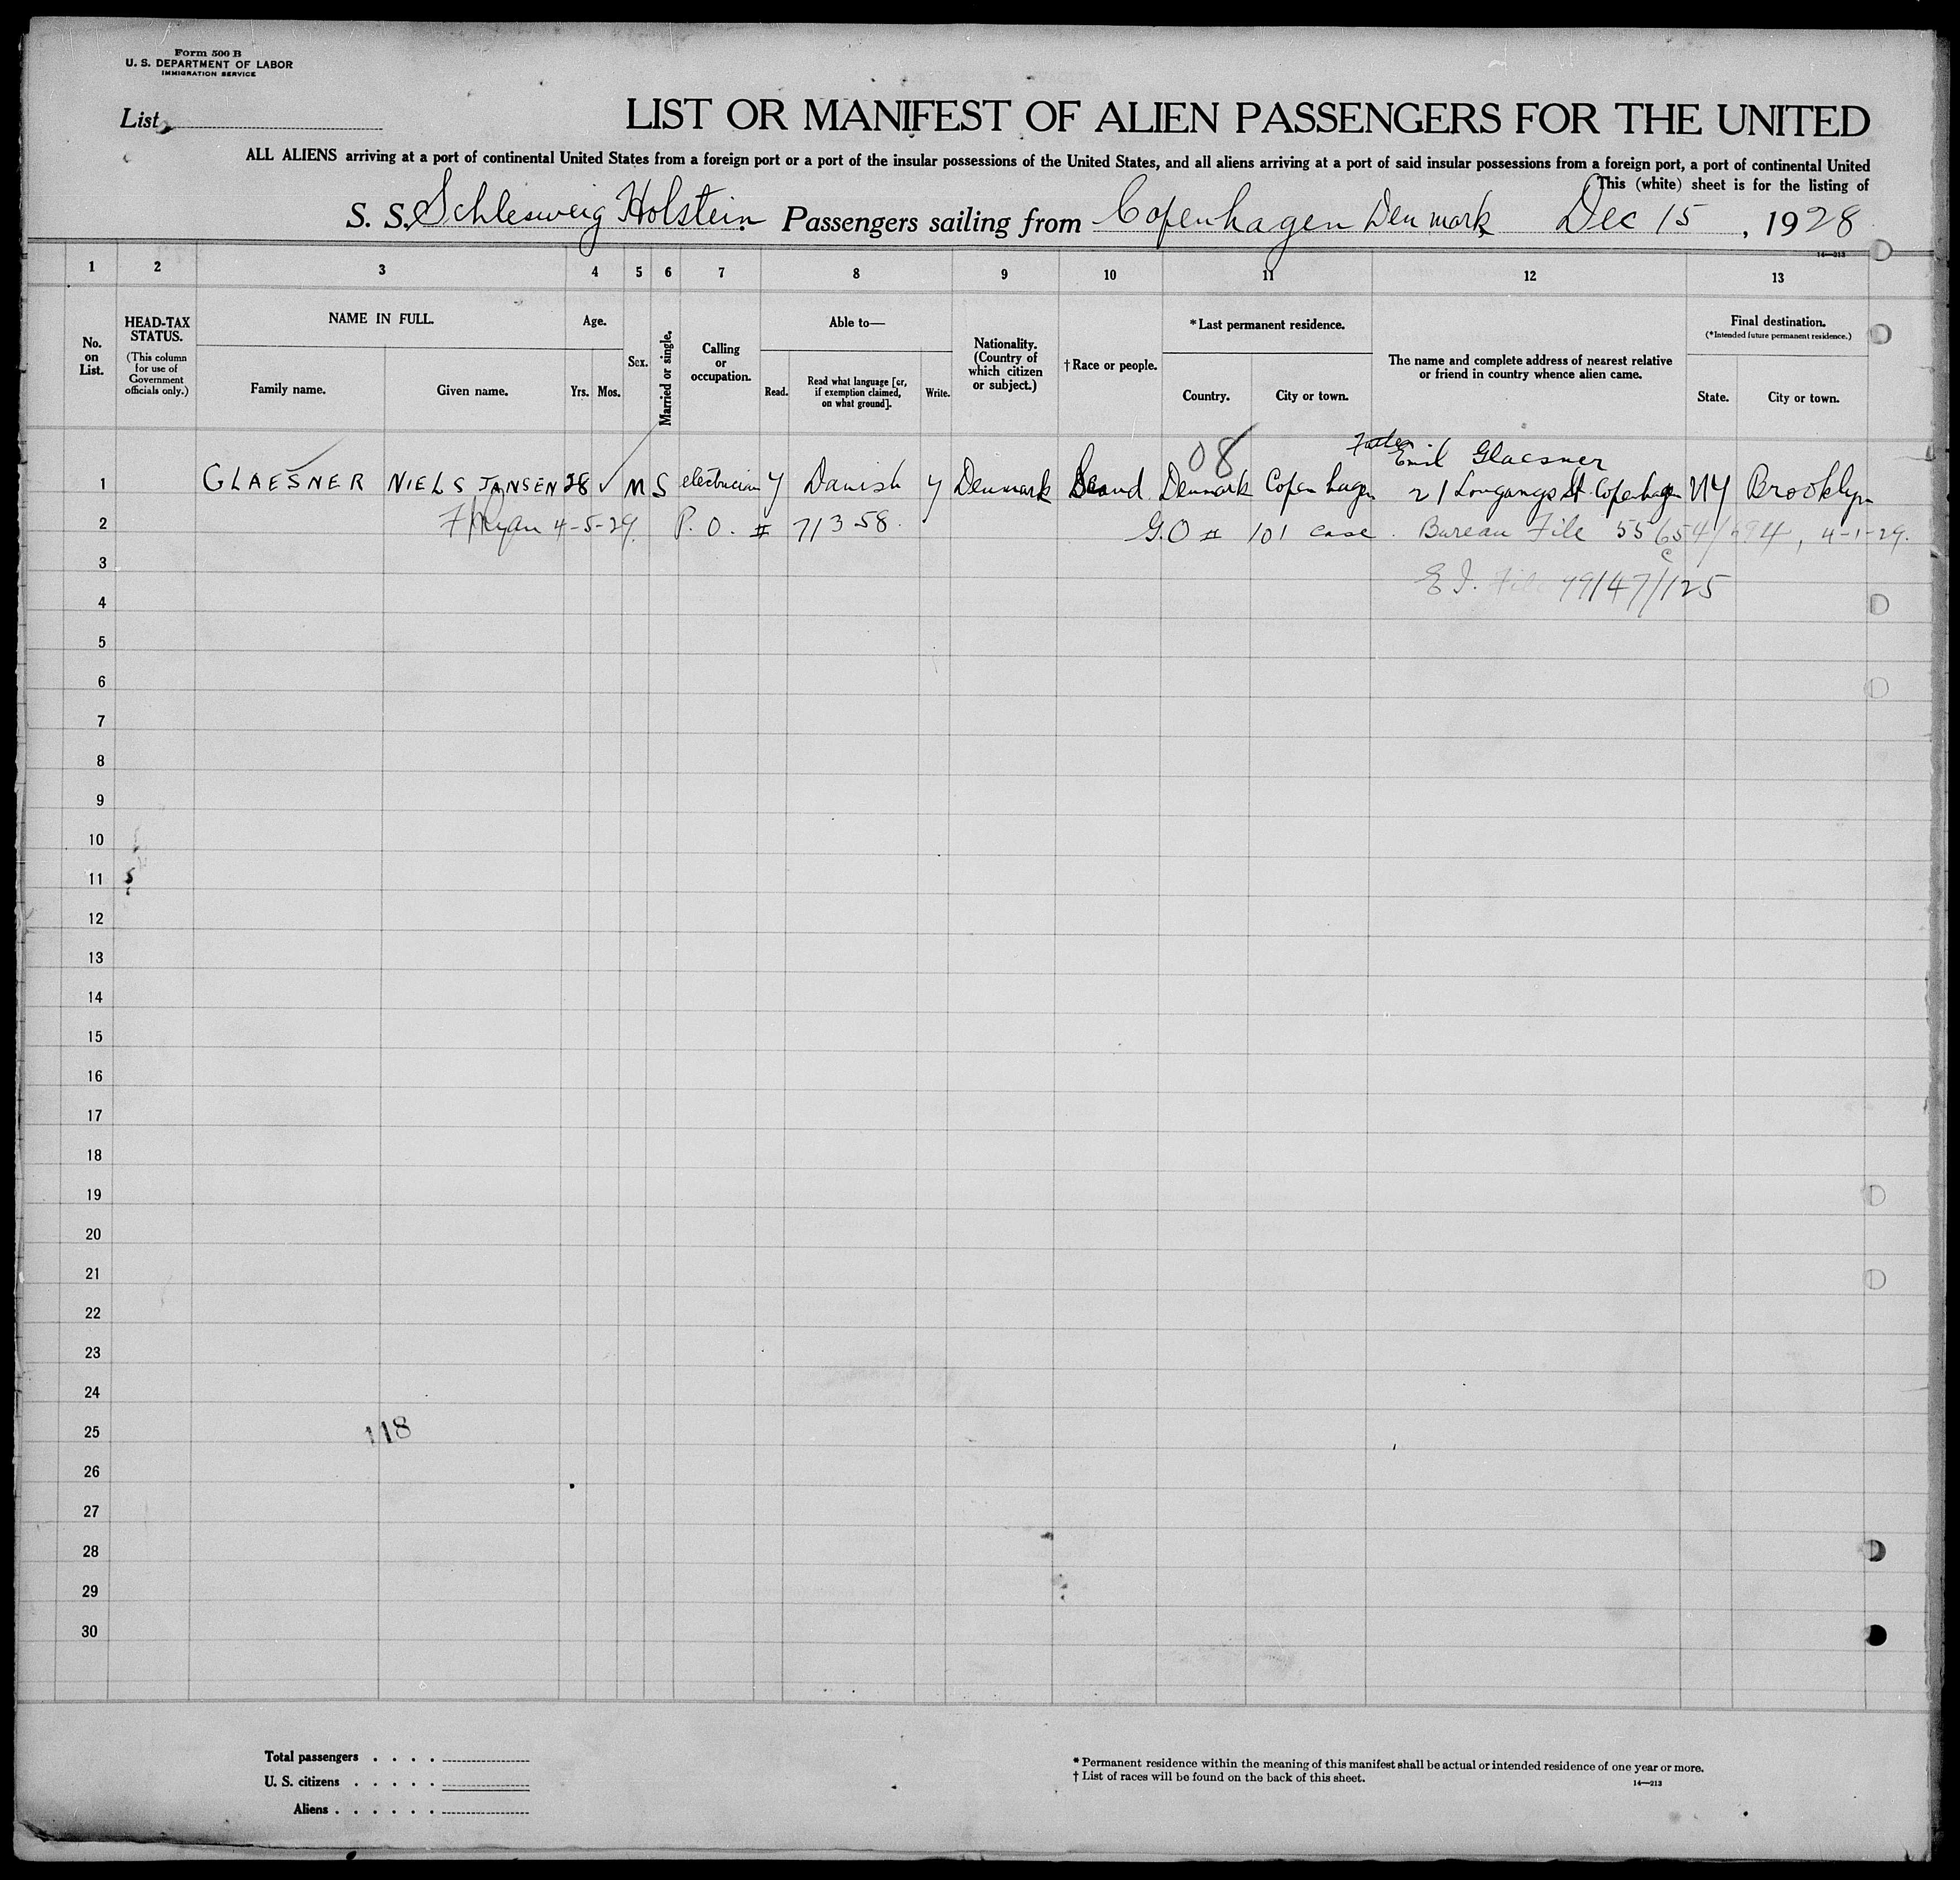 Form 500 B
U. S. DEPARTMENT OF LABOR
IMMIGRATION SERVICE
List
LIST OR MANIFEST OF ALIEN PASSENGERS FOR THE UNITED
ALL ALIENS arriving at a port of continental United States from a foreign port or a port of the insular possessions of the United States, and all aliens arriving at a port of said insular possessions from a foreign port, a port of continental United
This (white) sheet is for the listing of
S. S. Schleswig Holstein Passengers sailing from Copenhagen Denmark Dec 15, 1928
14—213
1 2 3 4 5 6 7 8 9 10 11 12 13
No. on List.
HEAD-TAX STATUS.
(This column for use of Government officials only.)
NAME IN FULL.
Family name. Given name.
Age.
Yrs. Mos.
Sex.
Married or single.
Calling or occupation.
Able to—
Read. Read what language [or, if exemption claimed, on what ground]. Write.
Nationality. (Country of which citizen or subject.)
† Race or people.
* Last permanent residence.
Country. City or town.
The name and complete address of nearest relative or friend in country whence alien came.
Final destination.
(*Intended future permanent residence.)
State. City or town.
08 Father Emil Glaesner
1 GLAESNER NIELS JANSEN 28 ✓ M S electrician y Danish y Denmark Scand. Denmark Copenhagen 21 Longangs St. Copenhagen NY Brooklyn
2 Ryan 4-5-29. P. O. # 71358. G.O # 101 case. Bureau File 4-1-29.
3 E I. File 99/47/125
4
5
6
7
8
9
10
11
12
13
14
15
16
17
18
19
20
21
22
23
24
25 118
26
27
28
29
30
Total passengers . . . .
U. S. citizens . . . . .
Aliens . . . . . .
* Permanent residence within the meaning of this manifest shall be actual or intended residence of one year or more.
† List of races will be found on the back of this sheet.
14—213